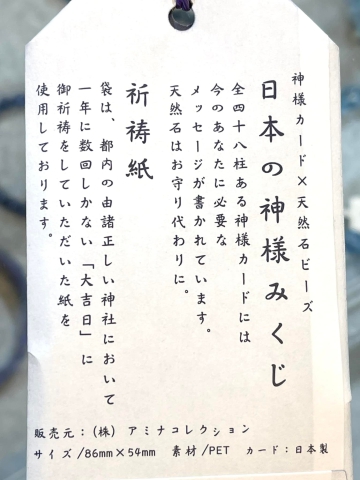 神様カード×天然石ビーズ
日本の神様みくじ
全四十八柱ある神様カードには
今のあなたに必要な
メッセージが書かれています。
天然石はお守り代わりに。
祈祷紙
袋は、都内の由諸正しい神社において
一年に数回しかない「大吉日」に
御祈祷をしていただいた紙を
使用しております。
販売元：(株) アミナコレクション
サイズ/86mm×54mm 素材/PET カード：日本製